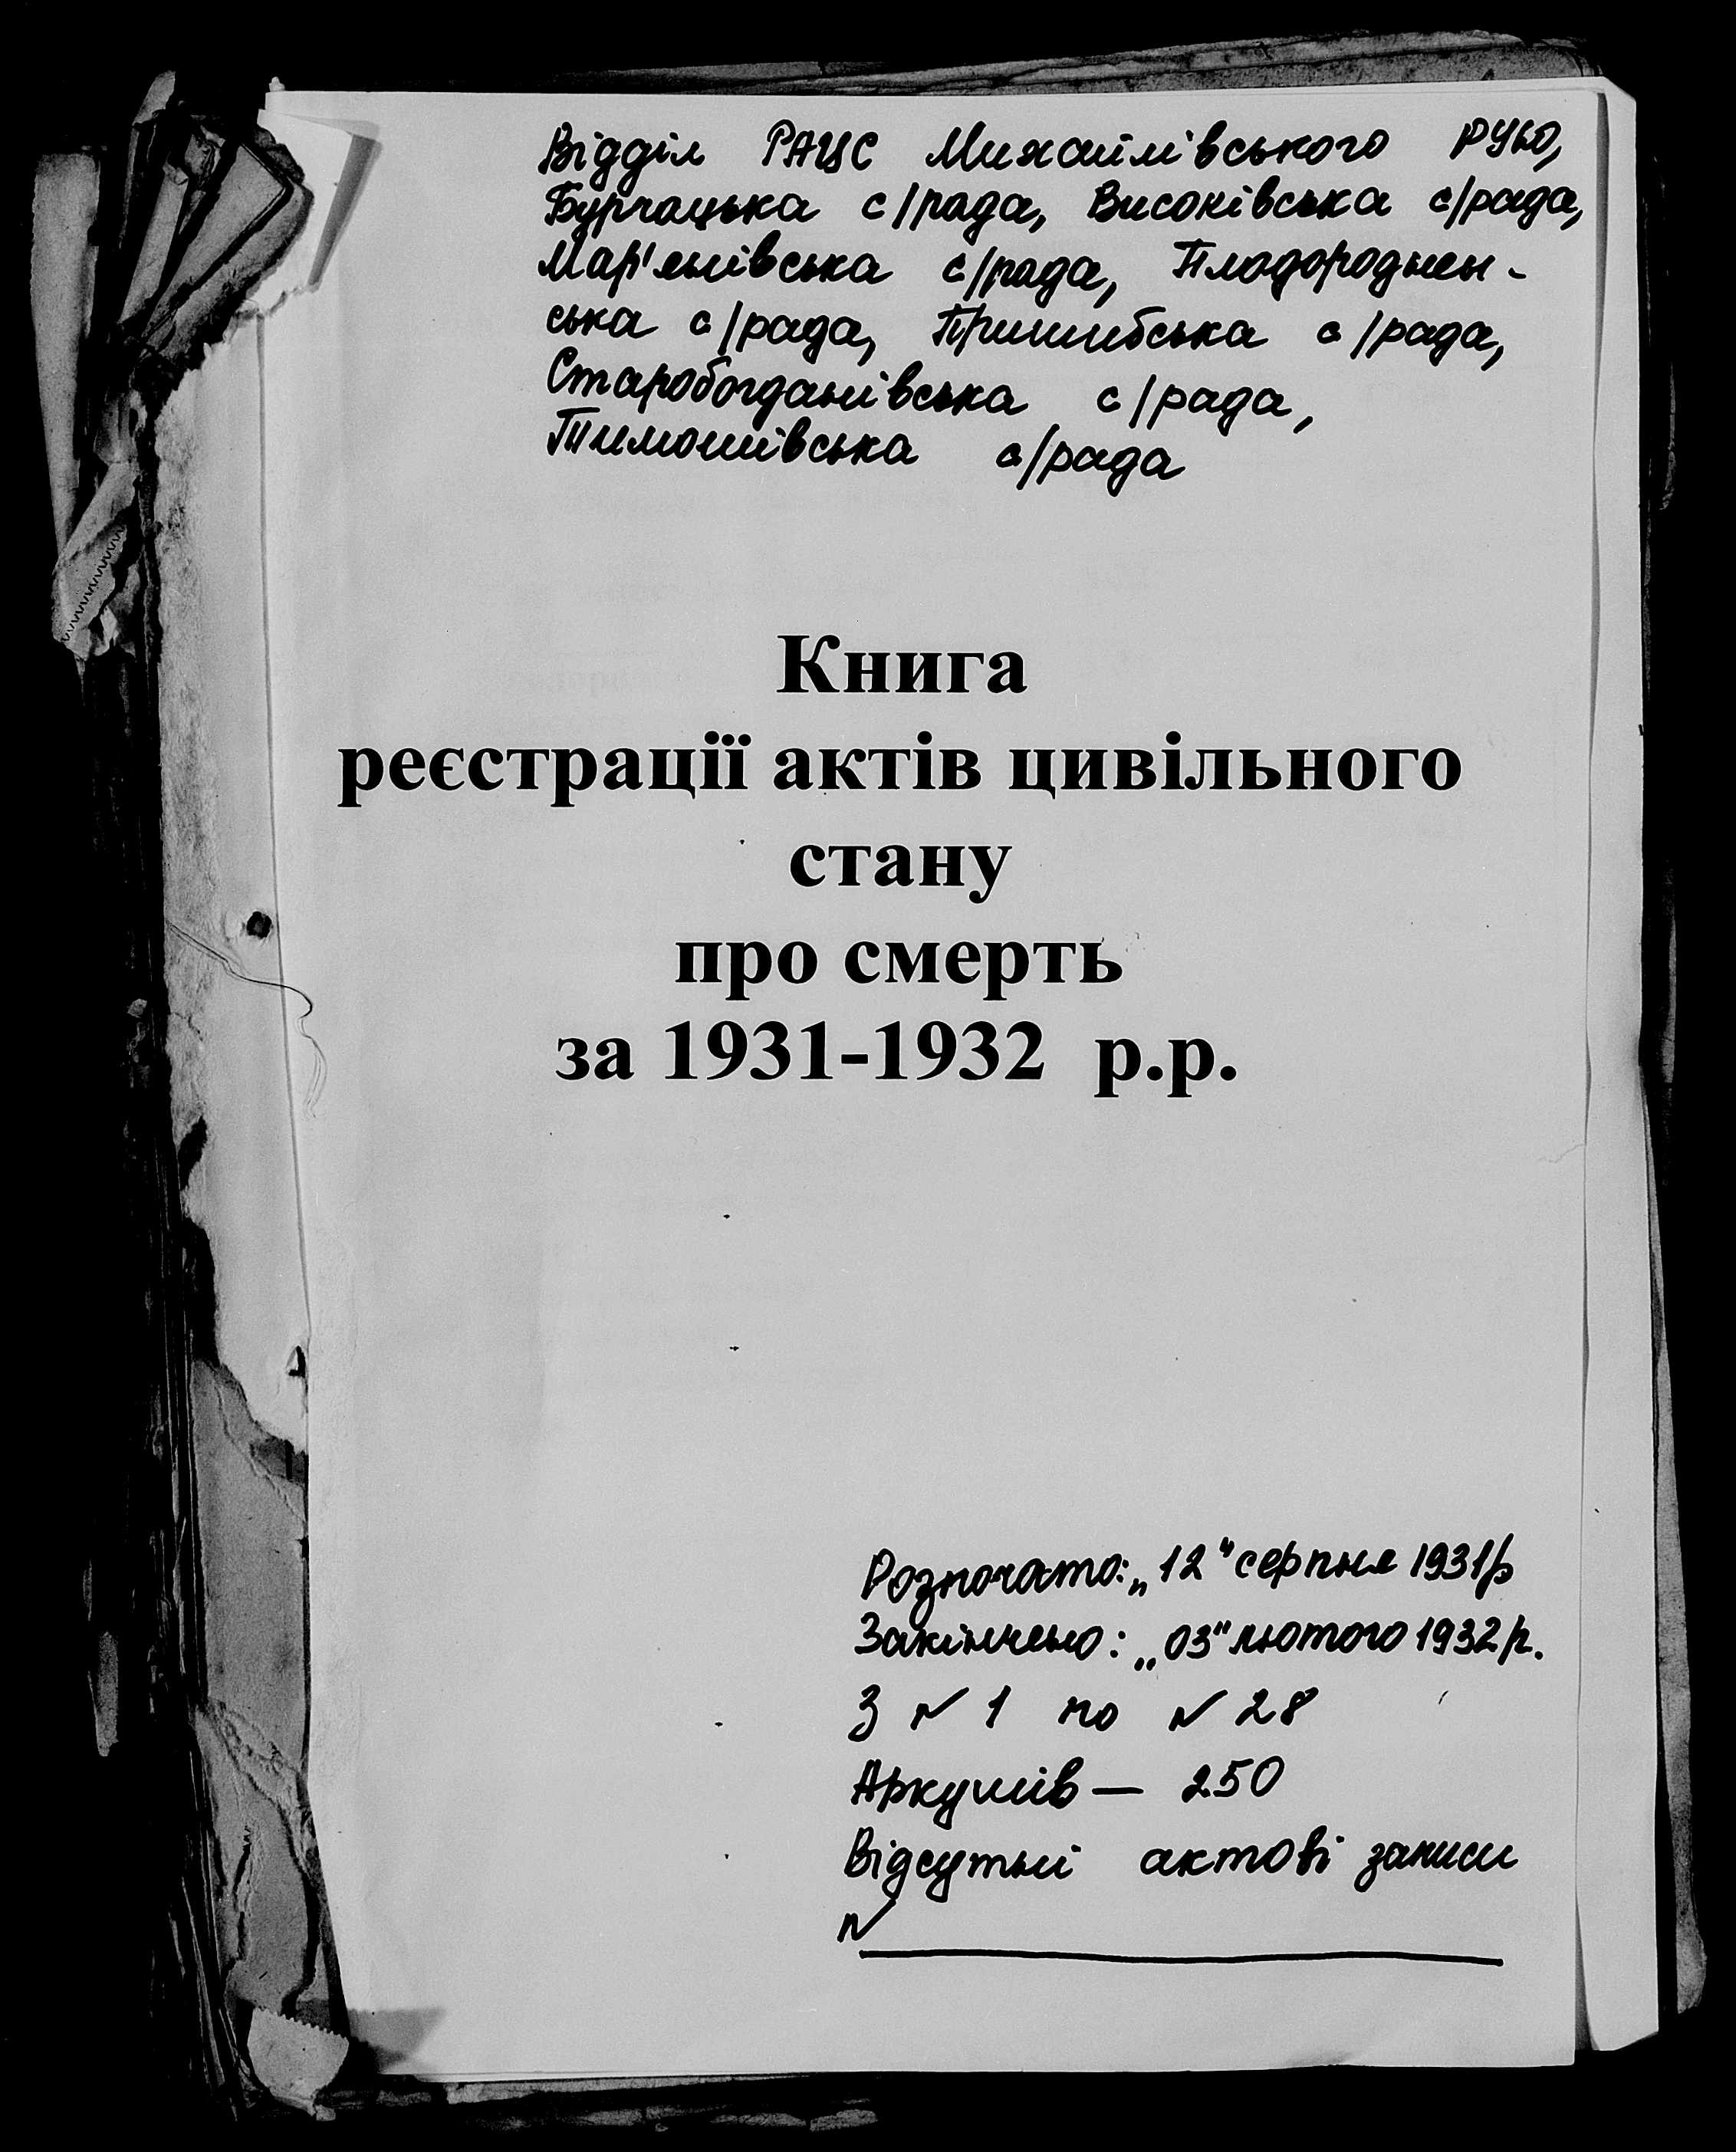 Відділ РАЦС Михайлівського РУЮ,
Бурчацька с/рада, Високівська с/рада,
Мар'янівська с/рада, Плодороднен-
ська с/рада, Пришибська с/рада,
Старобогданівська с/рада,
Тимошівська с/рада
Книга
реєстрації актів цивільного
стану
про смерть
за 1931-1932 р.р.
Розпочато: „12" серпня 1931р
Закінчено: „03" лютого 1932р.
З № 1 по № 28
Аркушів — 250
Відсутні актові записи
№